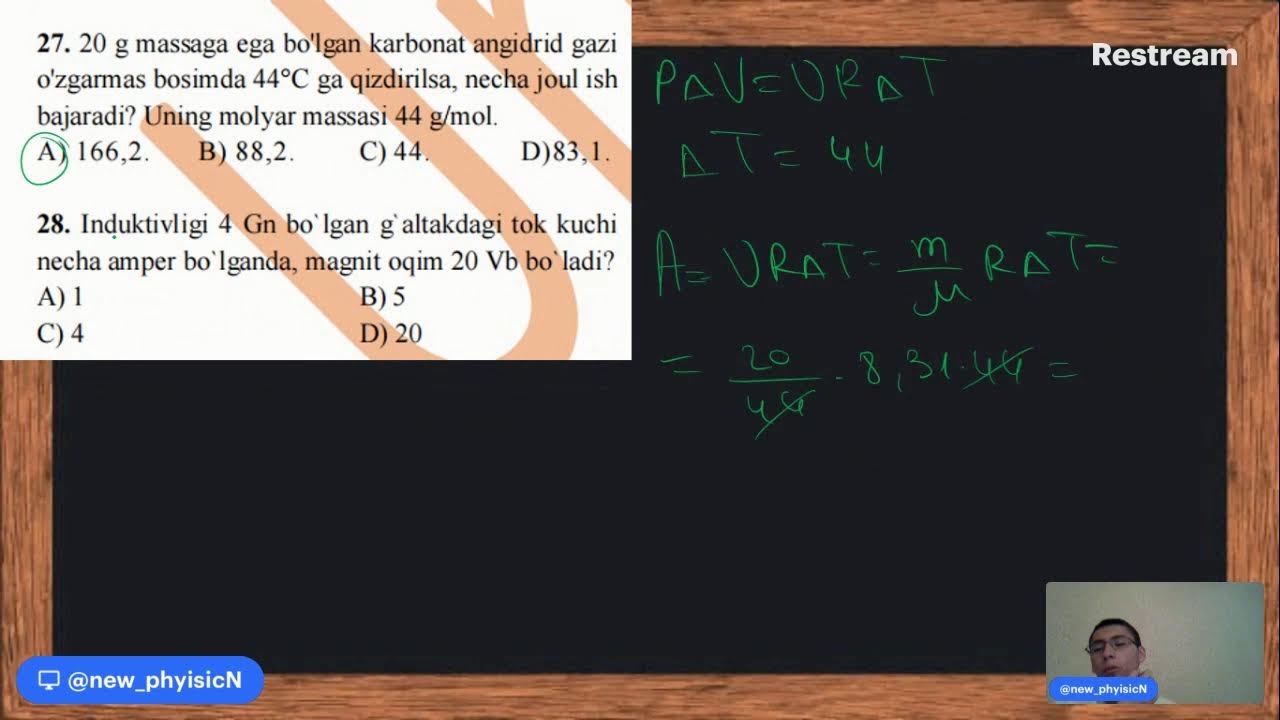 27. 20 g massaga ega bo'lgan karbonat angidrid gazi
o'zgarmas bosimda 44°C ga qizdirilsa, necha joul ish
bajaradi? Uning molyar massasi 44 g/mol.
A) 166,2. B) 88,2. C) 44. D)83,1.
28. Induktivligi 4 Gn bo`lgan g`altakdagi tok kuchi
necha amper bo`lganda, magnit oqim 20 Vb bo`ladi?
A) 1 B) 5
C) 4 D) 20
Restream
PΔV=νRΔT
ΔT=44
A=νRΔT=m/μ RΔT=
=20/44·8,31·44=
@new_phyisicN
@new_phyisicN